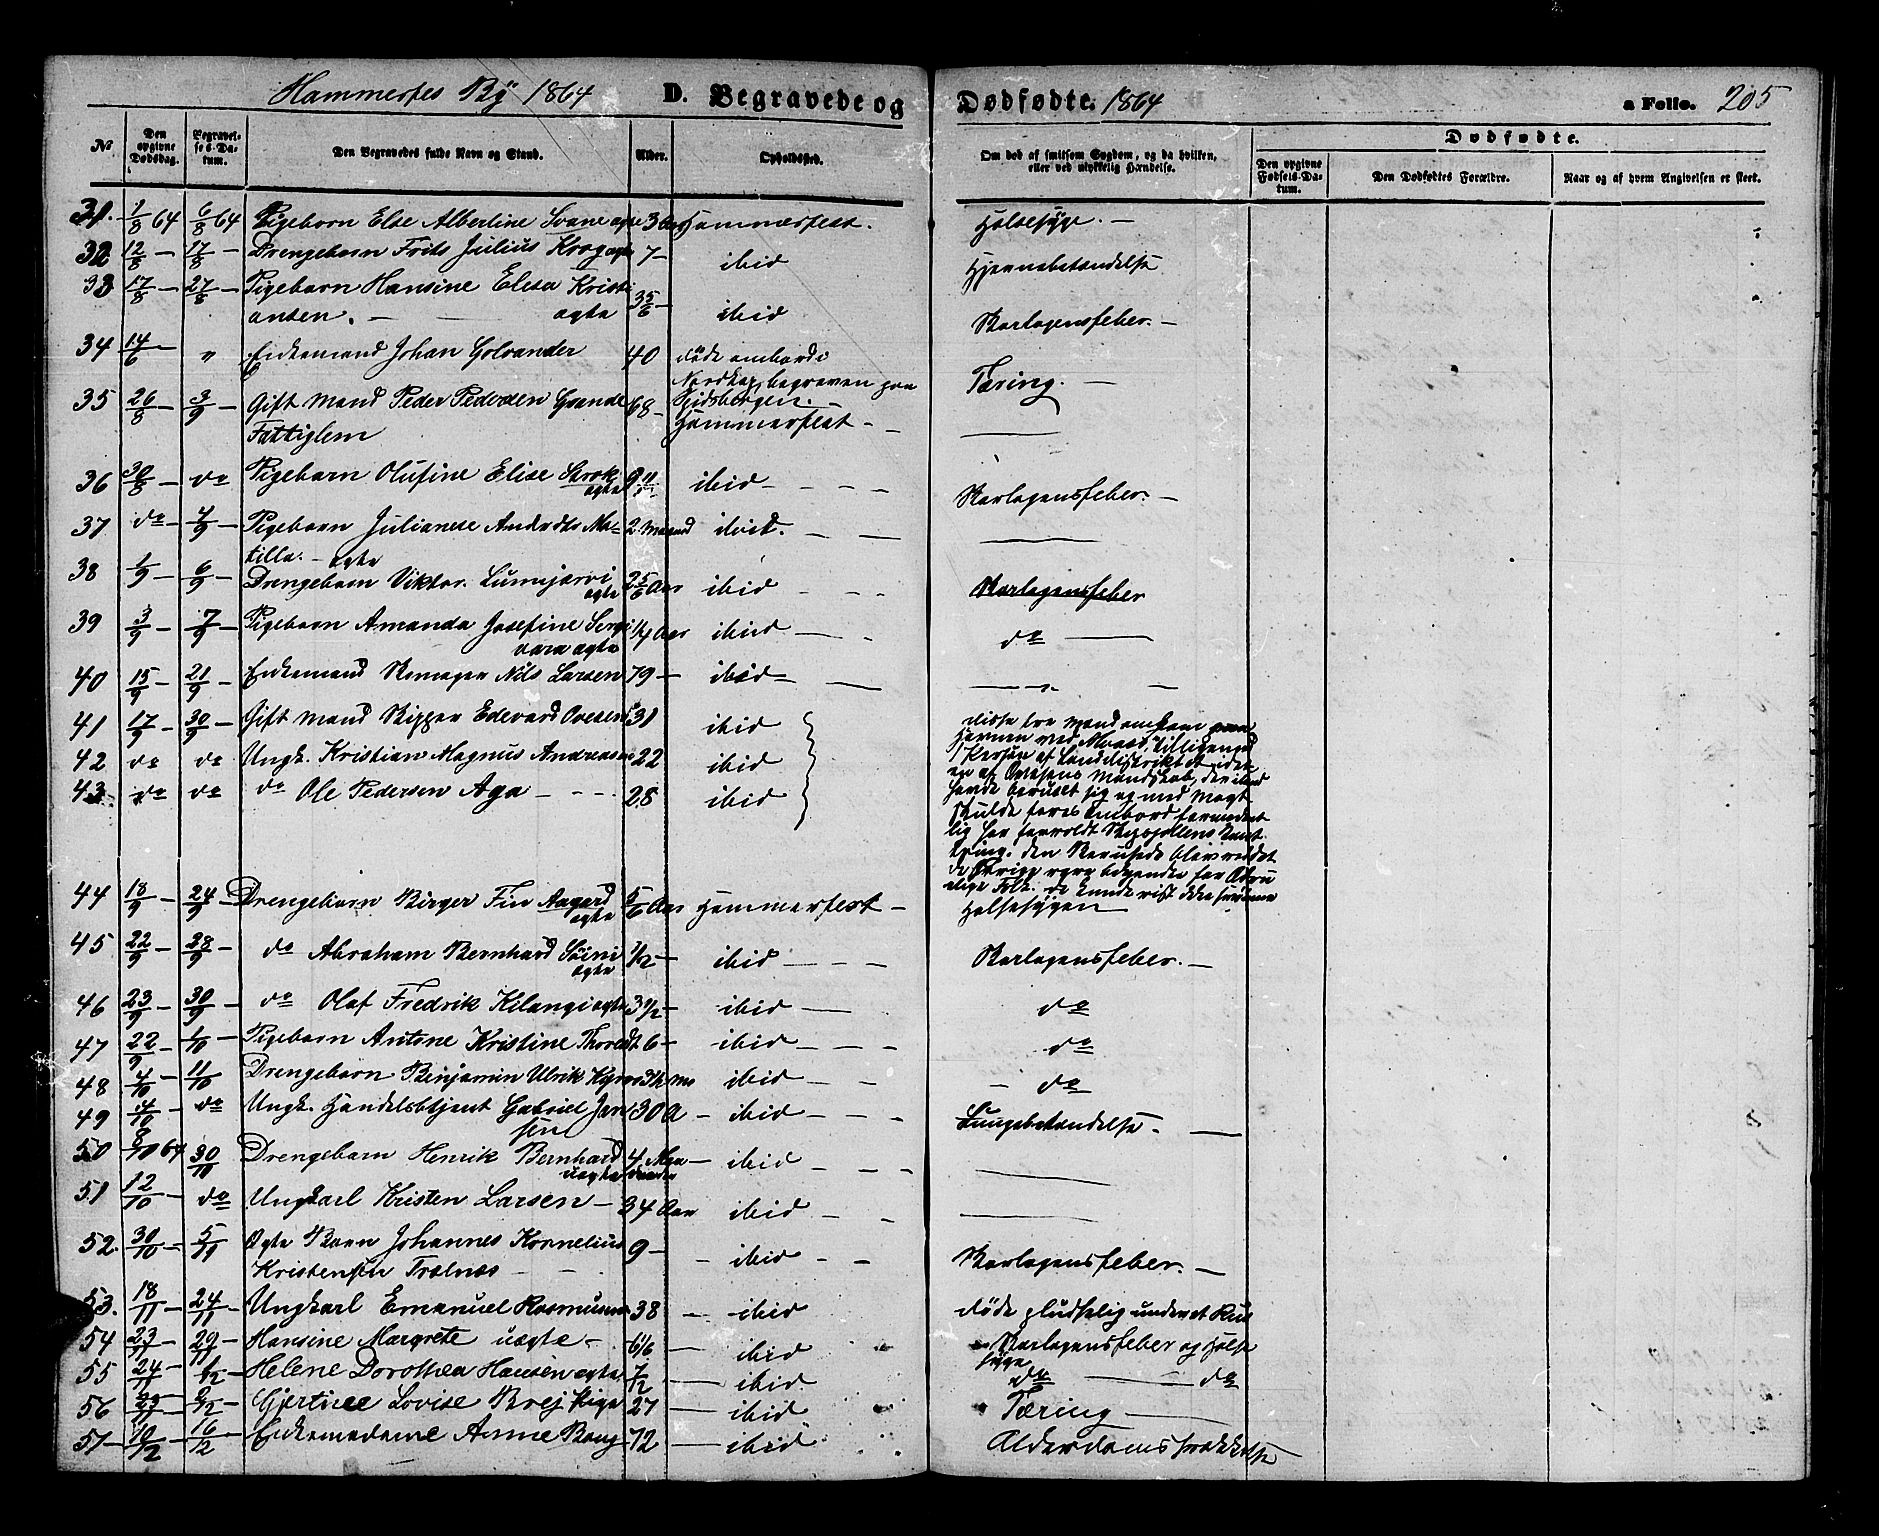 Hammerfes By 1864 D. Begravede og Dødfødte. 1864 a Folio. 205
No. Den opgivne Dødsdag. Begravelses-Datum. Den Begravedes fulde Navn og Stand. Alder. Opholdssted. Om død af smitsom Sygdom, og da hvilken, eller ved ulykkelig Hændelse. Dødfødte. Den opgivne Fødsels-Datum. Den Dødfødtes Forældre. Naar og af hvem Angivelsen er skeet.
31. 1/8 64 6/8 64 Pigebarn Else Albertine Svane ægte 3 Hammerfest. Halssyge. —
32 12/8 — 17/8 — Drengebarn Frits Julius Krog ægte 7 — ibid Hjernebetændelse
33 17/8 — 27/8 — Pigebarn Hansine Elesa Kristi
ansen. — ægte 3 5/6 — ibid Skarlagensfeber. —
34 14/6 — " Enkemand Johan Golvander 40 døde ombord i
Nordkap, begraven paa
Tæring. —
35 26/8 — 3/9 — Gift Mand Peder Pedersen Grande 68 —
Fattiglem Hammerfest - - —
36 30/8 — do Pigebarn Olufine Elise Strok
ægte 9 ibid - - - Skarlagensfeber. —
37 do — 4/9 — Pigebarn Julianese Ma-
tilla. — ægte 2 Maaned ibid. - — —
38 1/9 — 6/9 — Drengebarn Viktor. Lumijærvi
ægte 2 5/6 Aar ibid - - - Skarlagensfeber
39 3/9 — 7/9 — Pigebarn Amanda Josefine
vara ægte 1/4 Aar ibid — - do —
40 15/9 — 21/9 — Enkemand Nils Larsen 79 — ibid — — — " —
41 17/9 — 30/9 — Gift Mand Skipper Edevard Ovesen 31 ibid disse tre Mand omkom paa
Havnen ved
42 do do Ungk. Kristian Magnus Andreasen 22 ibid 1 Person af Landdistriktet
af Ovesens Mandskab, der
43 do do do Ole Pedersen Aga — - - - 28 ibid havde beruset sig og med Magt
skulde føres ombord formodent
lig har forvoldt Skibsjollens Kant
ring. den Berusede blev reddet
de Øvrige vare bekjendte for Ædru
elige Folk. de kunde vist ikke svømme
44 18/9 — 24/9 — Drengebarn Birger Fin Aagard
ægte 5/6 Aar Hammerfest — Halssygen —
45 22/9 — 28/9 — do Abraham Bernhard Söini
ægte 1/2 — ibid — - — Skarlagensfeber. —
46 23/9 — 30/9 — do Olaf Fredrik Kilangi ægte 3 1/2 — ibid — do
47 22/9 — 1/10 — Pigebarn Antone Kristine 6 — ibid — - — do
48 4/10 — 11/10 Drengebarn Benjamin Ulrik 3 1/2 ibid — - — do
49 4/10 — do Ungk. Handelsbetjent Gabriel Jan
sen 30 A — ibid — - - Lungebetændelse. —
50 8/10 64 30/10 Drengebarn Henrik Bernhard
uægte 4 Maa —
neder ibid — - - —
51 12/10 — do Ungkarl Kristen Larsen — 34 Aar ibid — - —
52. 30/10 — 5/11 Ægte Barn Johannes Kornelius
Kristensen Trælnæs — - 9 — — ibid — — Skarlagensfeber. —
53. 18/11 — 24/11 — Ungkarl Emanuel Rasmusen 38 — ibid døde pludselig under et Rus
54 23/11 — 29/11 — Hansine Margrete uægte — 6 1/6 — ibid Skarlagensfeber og Hals
syge
55 24/11 — 1/12 — Helene Dorothea Hansen ægte 7/12 — ibid. do — do
56 29/11 — 2/12 — Gjertine Lovise Brej Pige 27 — ibid Tæring —
57 — 10/12 — 16/12 — Enkemadame Anne 72 — ibid Alderdomssvækkelse